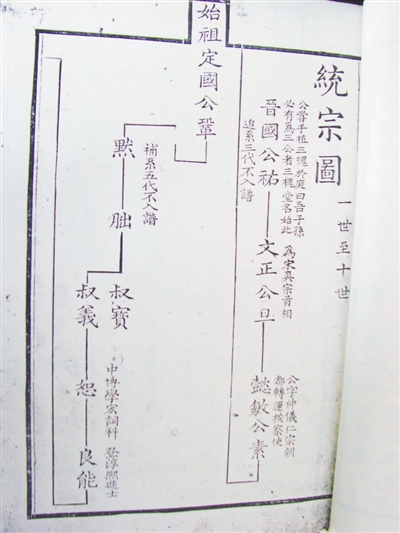 統宗圖
一世至十世
公嘗手植三槐於庭曰吾子孫
必有爲三公者三槐堂名始此
晉國公祐
追系三代不入譜
爲宋真宗首相
文正公旦
公字仲儀仁宗朝
都轉運按察使
懿敏公素
始祖定國公鞏
補系五代不入譜
默
朏
叔寶
叔義
恕
中博學宏詞科 登淳熙進士
良能